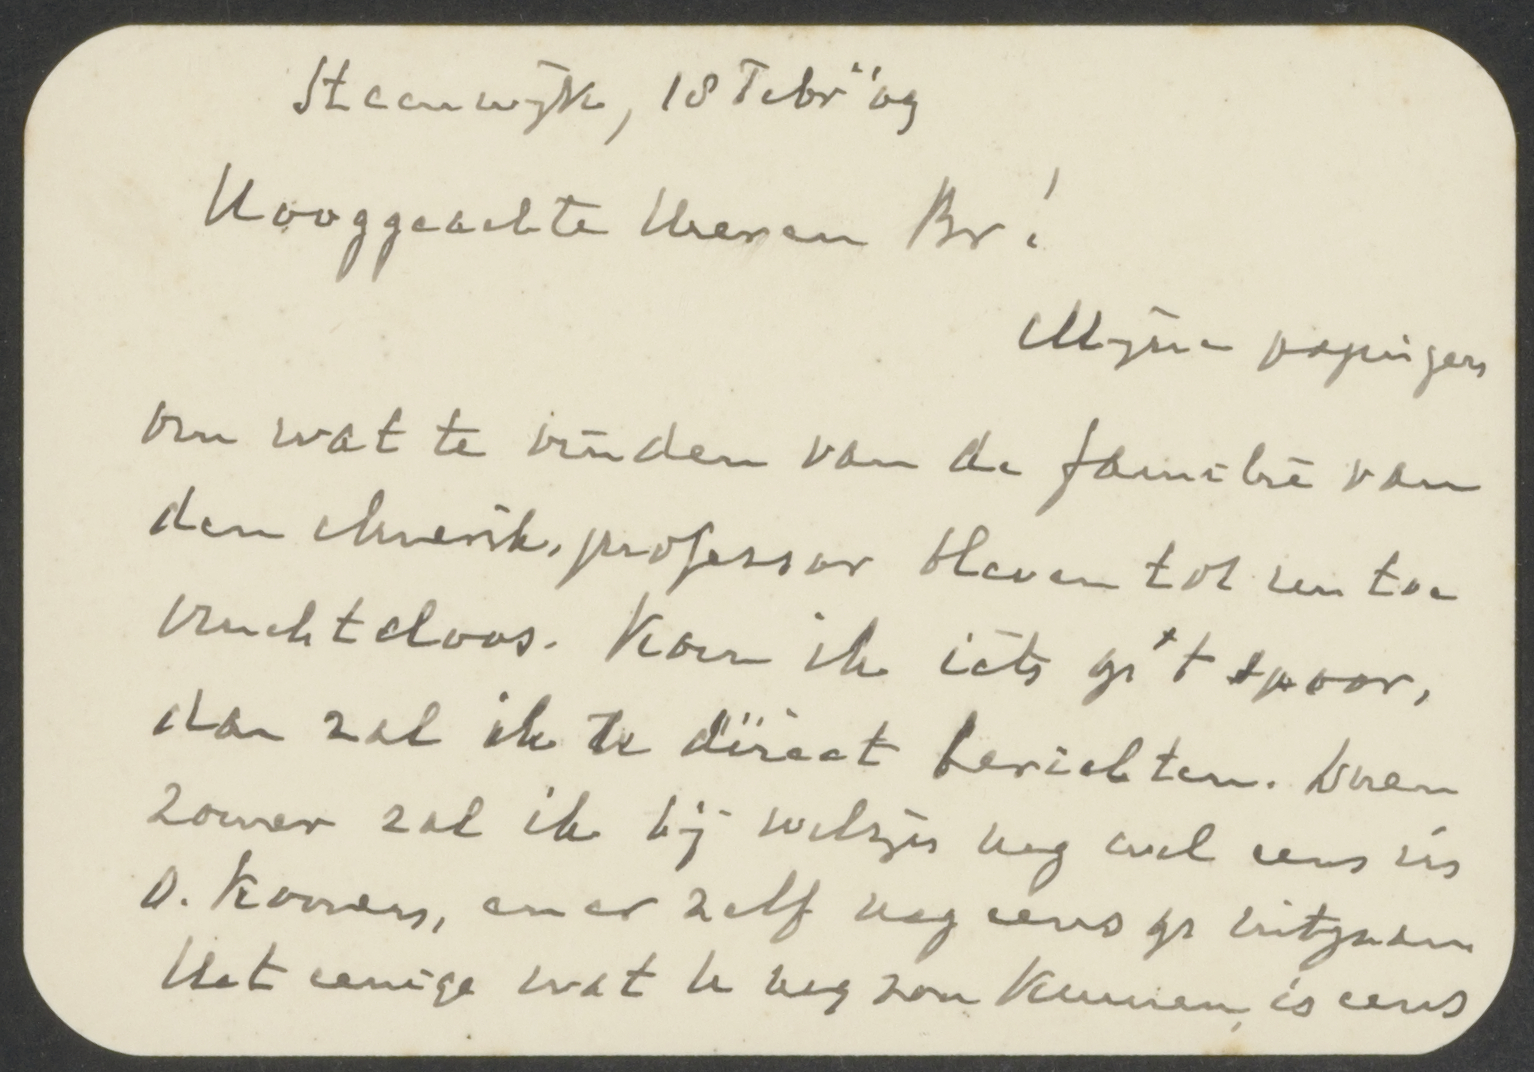 Steenwijk, 18 Febr '09
Hooggeachte Heeren Br!
Mijne pogingen
om wat te vinden van de familie van
den Amerik. professor bleven tot nu toe
vruchteloos. Kom ik iets op 't spoor,
dan zal ik U direct berichten. Dezen
zomer zal ik bij welzijn nog wel eens in
D. komen, en er zelf nog eens op uitgaan
Het eenige wat U nog zou kunnen, is eens